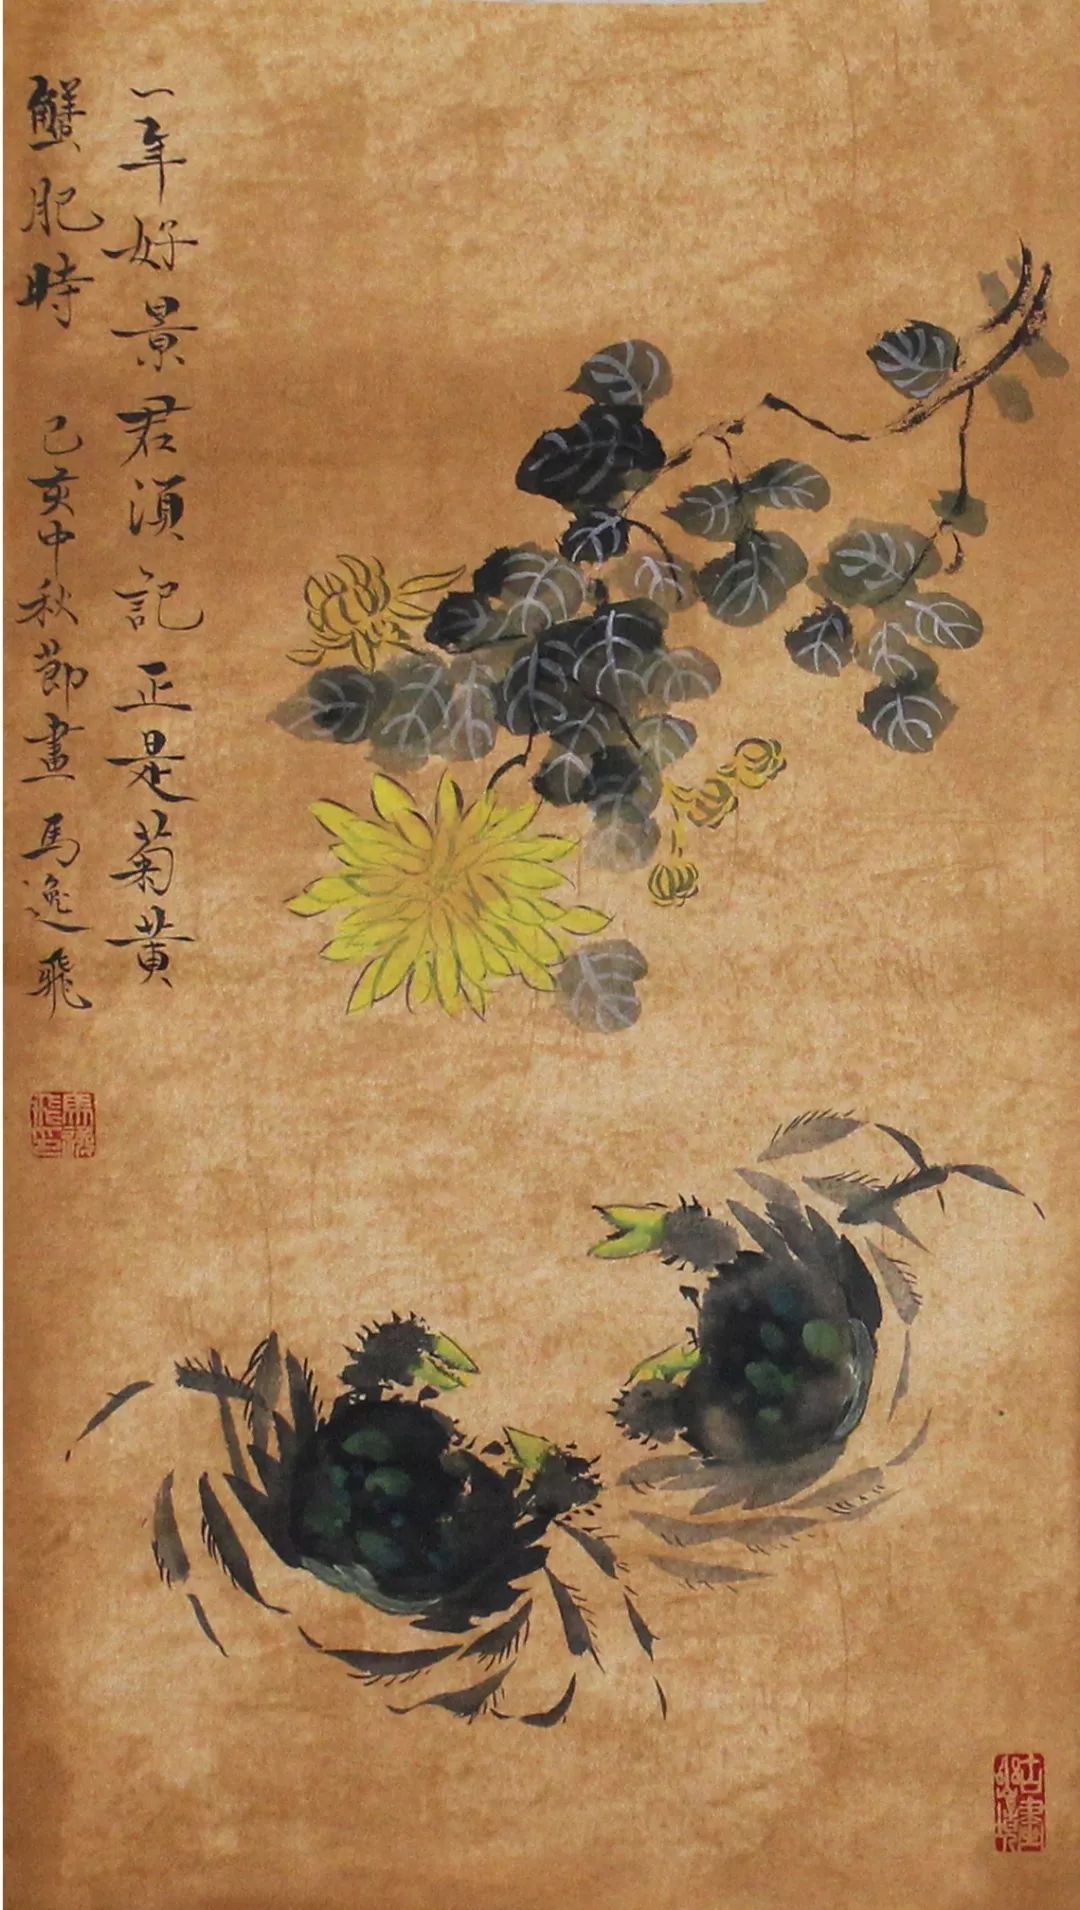 一年好景君須記正是菊黃
蟹肥時
己亥中秋節畫馬逸飛